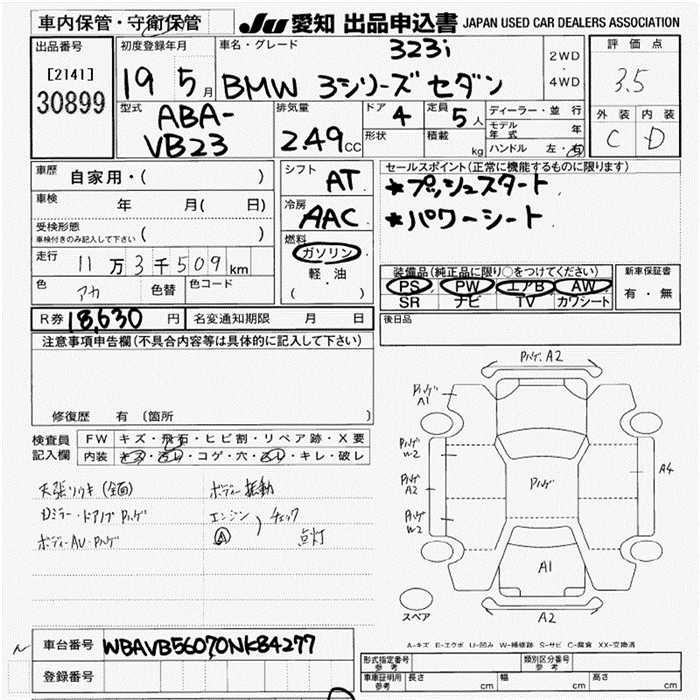 車内保管・守衛保管
JU 愛知 出品申込書 JAPAN USED CAR DEALERS ASSOCIATION
出品番号
[2141]
30899
初度登録年月
19 5月
車名・グレード
323i
BMW 3シリーズセダン
2WD
4WD
評価点
3.5
外装 内装
C D
型式
ABA-
VB23
排気量
2.49cc
ドア 4
形状
定員 5人
積載 kg
ディーラー・並行
モデル年式 年
ハンドル 左・右
車歴 自家用・( )
車検 年 月( 日)
受検形態
車検付きのみ記入して下さい ( )
走行 11万3千509km
色 アカ 色替 色コード
シフト AT
冷房 AAC
燃料
ガソリン
軽・油
( )
セールスポイント(正常に機能するものに限ります)
★プッシュスタート
★パワーシート
装備品(純正品に限り○をつけてください)
PS PW エアB AW
SR ナビ TV カワシート
新車保証書
有・無
R券 18,630円 名変通知期限 月 日
後日品
注意事項申告欄(不具合内容等は具体的に記入して下さい)
修復歴 有 (箇所 )
検査員記入欄
FW キズ・飛石・ヒビ割・リペア跡・X要
内装 キズ・汚レ・コゲ・穴・スレ・キレ・破レ
天張ソウキ(全面)
Dミラー・ドアノブ ハゲ
ボディーAU・ハゲ
ボディー振動
エンジン チェック
A 点灯
ハゲ A2
ハゲ A1
ハゲ W2
ハゲ A2
ハゲ W2
ハゲ
A4
A1
A2
スペア
A-キズ E-エクボ U-凹み W-補修跡 S-サビ C-腐食 XX-交換済
車台番号 WBAVB56070NK84277
登録番号
形式指定番号 参考
類別区分番号 参考
車庫証明用 参考 長さ cm 幅 cm 高さ cm